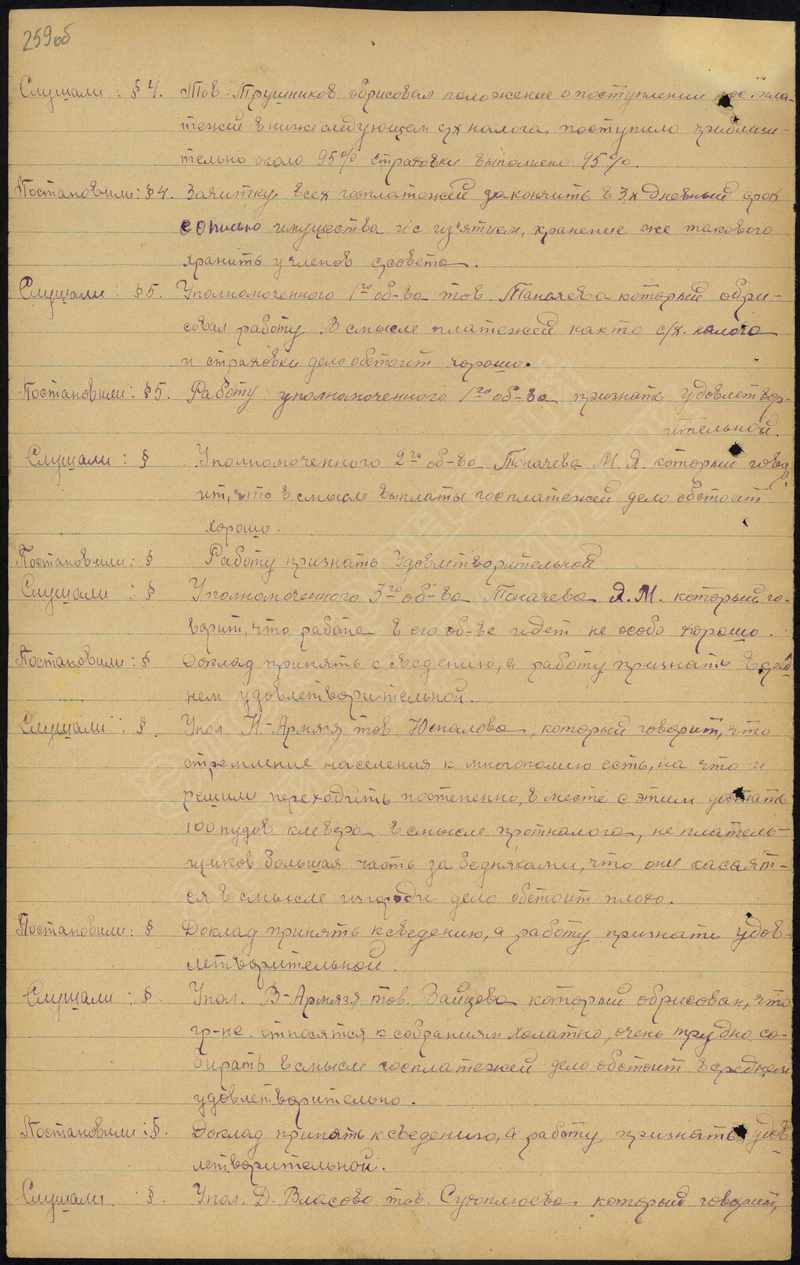 259об
Слушали: § 4. Тов. Трушников обрисовал положение о поступлении
тежей в нижеследующем с/х налога, поступило приблизи-
тельно около 95% страховки выполнено 95%.
Постановили: § 4. Зачистку всех госплатежей закончить в 3х дневный срок
с описью имущества и с из'ятием, хранение же такового
хранить у членов с/совета.
Слушали: § 5. Уполномоченного 1го об-ва тов. который обри-
совал работу. В смысле платежей как то с/х. налога
и страховки дело обстоит хорошо.
Постановили: § 5. Работу уполномоченного 1го об-ва признать удовлетвор-
ительной.
Слушали: § Уполномоченного 2го об-ва М. Я. который говор
ит, что в смысле выплаты госплатежей дело обстоит
хорошо.
Постановили: § Работу признать удовлетворительной
Слушали: § Уполномоченного 3го об-ва Я. М. который го-
ворит, что работа в его об-ве идет не особо хорошо.
Постановили: § Доклад принять к сведению, а работу признать в сред-
нем удовлетворительной.
Слушали: §. Упол. Н-Армязя тов. Юспалова, который говорит, что
стремление населения к многополию есть, на что и
решили переходить постепенно, вместе с этим достать
100 пудов клевера, в смысле
щиков большая часть за бедняками, что они касает-
ся в смысле дело обстоит плохо.
Постановили: § Доклад принять к сведению, а работу признать удов-
летворительной.
Слушали: §. Упол. В-Армязя тов. Зайцева который обрисовал, что
гр-не. относятся к собраниям халатно, очень трудно со-
бирать в смысле госплатежей дело обстоит в среднем
удовлетворительно.
Постановили: §. Доклад принять к сведению, а работу признать удов
летворительной.
Слушали: §. Упол. Д. Власово тов. Сухоплюева который говорит,